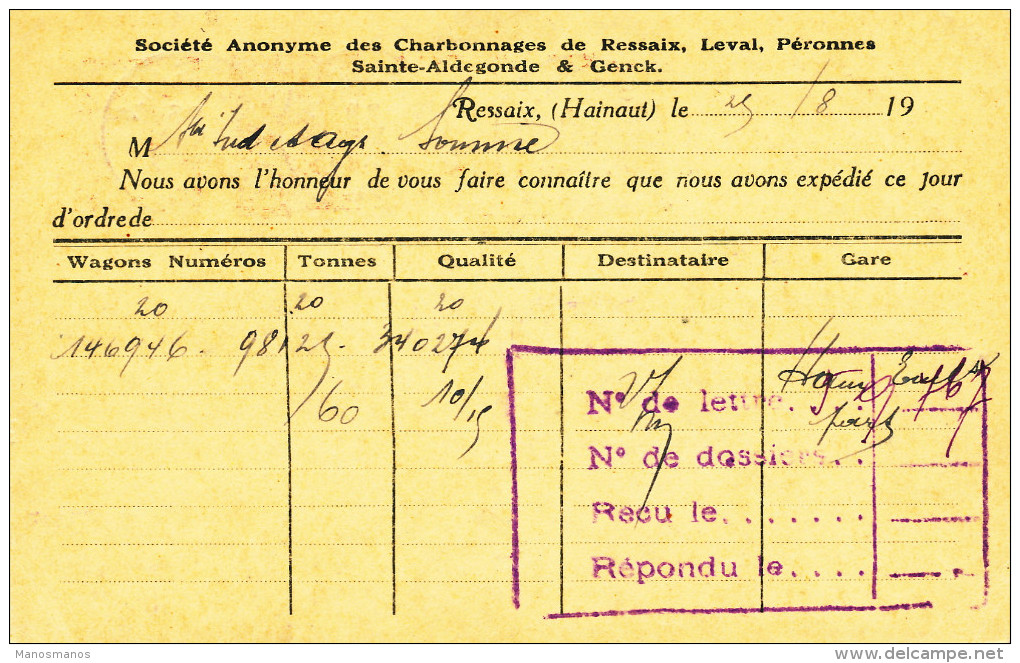 Société Anonyme des Charbonnages de Ressaix, Leval, Péronnes
Sainte-Aldegonde & Genck.
Ressaix, (Hainaut) le 25/8 19
M
Nous avons l'honneur de vous faire connaître que nous avons expédié ce jour
d'ordre de
Wagons Numéros Tonnes Qualité Destinataire Gare
20 20 20
146946. 340274
160 10/15
N° de lettre
N° de dossiers..
Reçu le.......
Répondu le....
Manosmanos
delcampe.net